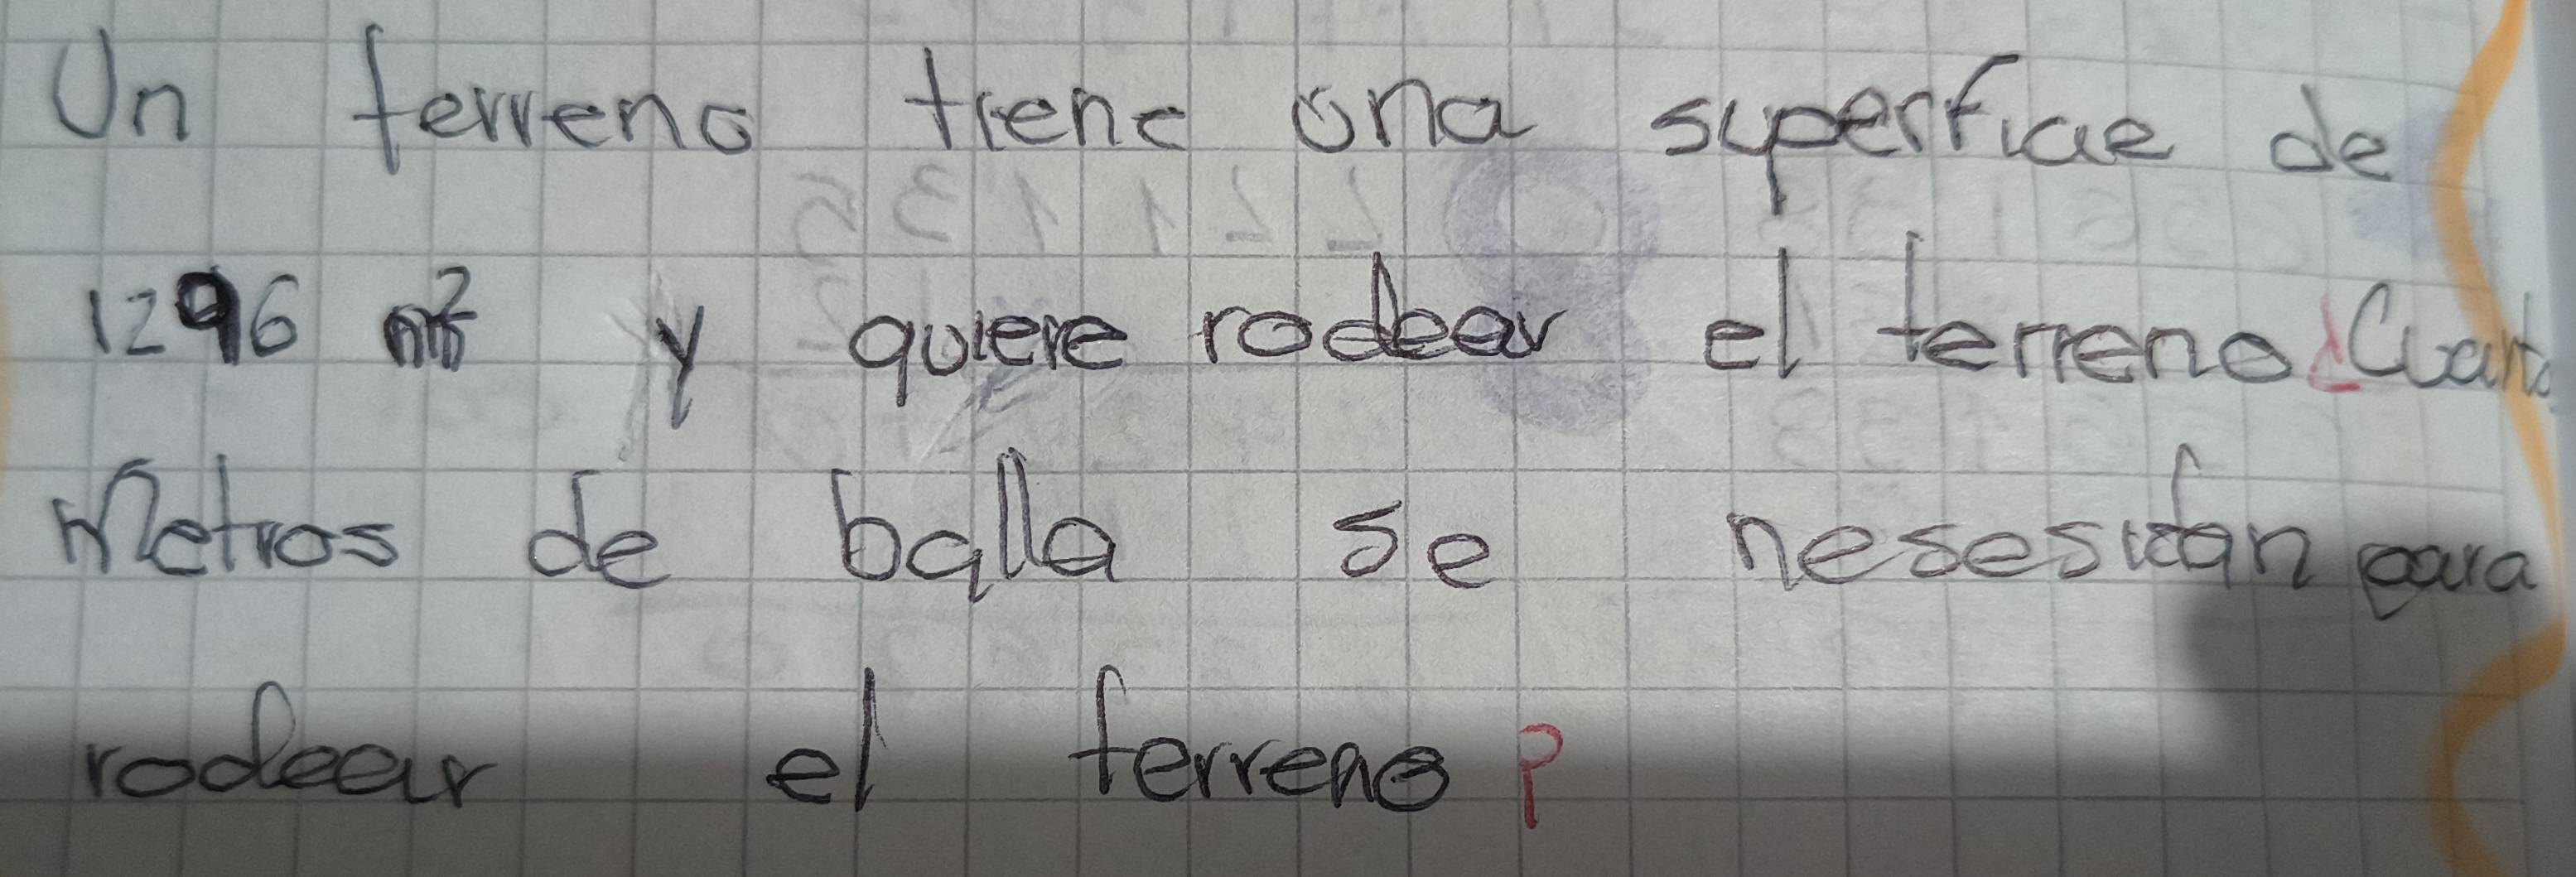 Un terreno tiene una superficie de
1296 m² y quiere rodear el terreno ¿Cuanto
Metros de balla se nesesitan para
rodear el terreno?